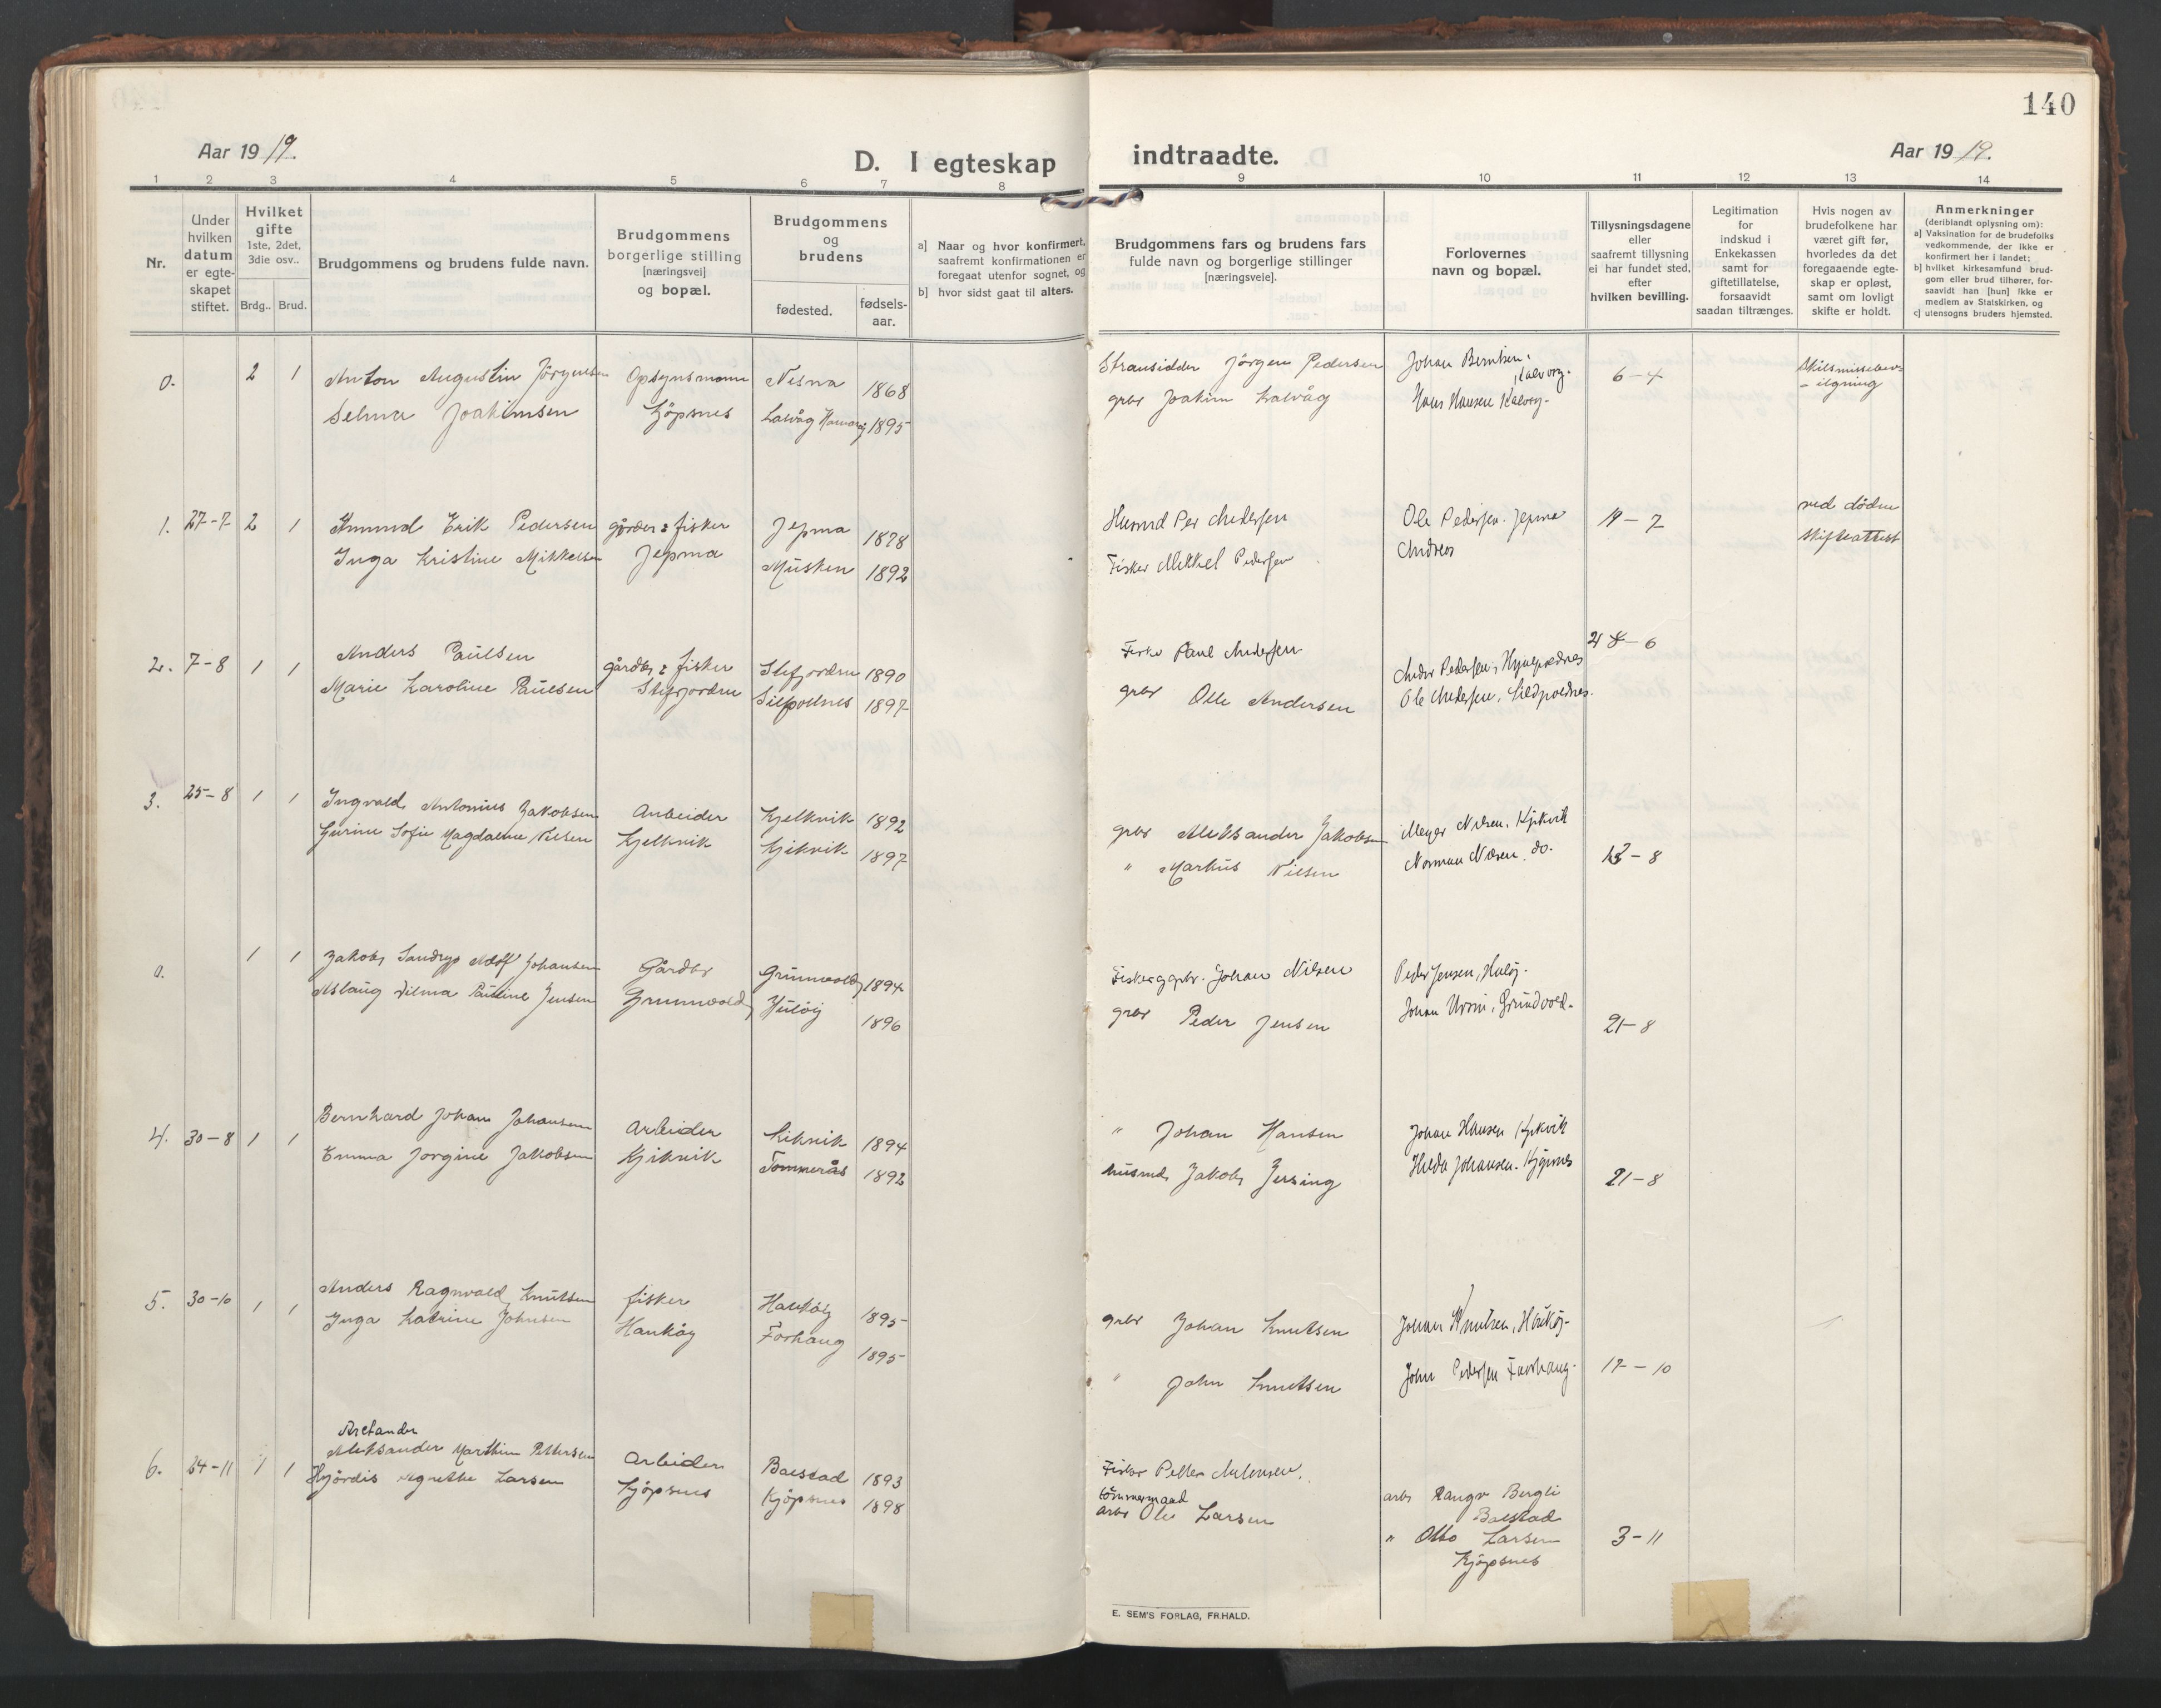 140
Aar 1919.
D. I egteskap indtraadte.
Aar 1919.
1 2 3 4 5 6 7 8 9 10 11 12 13 14
Nr.
Under hvilken datum er egte-skapet stiftet.
Hvilket gifte 1ste, 2det, 3die osv..
Brdg.. Brud.
Brudgommens og brudens fulde navn.
Brudgommens borgerlige stilling [næringsvei] og bopæl.
Brudgommens og brudens
fødested.
fødsels-aar.
a] Naar og hvor konfirmert, saafremt konfirmationen er foregaat utenfor sognet, og
b] hvor sidst gaat til alters.
Brudgommens fars og brudens fars fulde navn og borgerlige stillinger [næringsveie].
Forlovernes navn og bopæl.
Tillysningsdagene eller saafremt tillysning ei har fundet sted, efter hvilken bevilling.
Legitimation for indskud i Enkekassen samt for giftetillatelse, forsaavidt saadan tiltrænges.
Hvis nogen av brudefolkene har været gift før, hvorledes da det foregaaende egte-skap er opløst, samt om lovligt skifte er holdt.
Anmerkninger
(deriblandt oplysning om):
a] Vaksination for de brudefolks vedkommende, der ikke er konfirmert her i landet;
b] hvilket kirkesamfund brud-gom eller brud tilhører, for-saavidt han [hun] ikke er medlem av Statskirken, og
c] utensogns bruders hjemsted.
0. 2 1 Anton Augustin Jörgensen Opsynsmann Nesna 1868 Stransidder Jörgen Pedersen Johan Berntsen, Kalvåg. 6-4 Skilsmissebev-ilgning
Selma Joakimsen Kjöpsnes 1895 grbr Joakim Kalvåg Hans Hansen Kalvåg.
1. 27-7 2 1 Amund Erik Pedersen gårdbr & fisker Jepma 1878 Husmd Per Andersen Ole Pedersen. Jepma 19-7 ved døden
Inga Kristine Mikkelsen Jepma Musken 1892 Fisker Mikkel Pedersen Andreas skifteattest
2. 7-8 1 1 Anders Paulsen gårdbr & fisker Stefjorden 1890 Fisker Paul Andersen 8-6
Marie Karoline Paulsen Stefjorden 1897 grbr Olle Andersen Ole Andersen,
3. 25-8 1 1 Ingvald Antonius Jakobsen Arbeider Kjelkvik 1892 grbr Aleksander Jakobsen Meyer Nilsen, Kjikvik
Gurine Sofie Magdalene Nilsen Kjelkvik Kjikvik 1897 " Markus Nilsen Norman Nilsen, do. -8
0. 1 1 Jakob Adolf Johansen Gårdbr Grunvold 1894 Fisker og grbr. Johan Nilsen Peder Jensen, Huløy.
Aslaug Vilma Pauline Jensen Grunnvold Huløy 1896 grbr Peder Jensen Johan Grundvold. 21-8
4. 30-8 1 1 Bernhard Johan Johansen Arbeider Kikvik 1894 " Johan Hansen Johan Hansen Kjikvik
Emma Jorgine Jakobsen Kjikvik Tommerås 1892 husmd. Jakob Hilda Johansen. Kjöpsnes 21-8
5. 30-10 1 1 Anders Ragnvald Knutsen fisker Hauköy 1895 grbr Johan Knutsen Johan Knutsen, Hauköy.
Inga Katrine Johnsen Hauköy Forhaug 1895 " John Knutsen John Pedersen 17-10
6. 24-11 1 1 Aleksander Marthin Pettersen Arbeider Balstad 1893 Fisker Petter arbr Ragnv Bergli
Hjördis Agnethe Larsen Kjöpsnes Kjöpsnes 1898 arbr Ole Larsen Balstad
" Otto Larsen 3-11
Kjöpsnes
E. SEM'S FORLAG, FR.HALD.